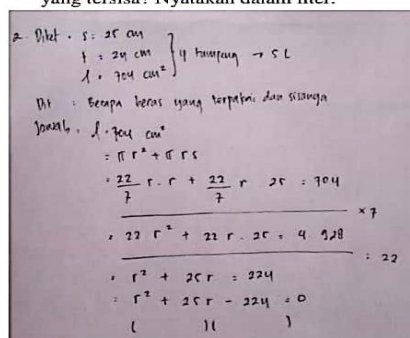 yang tersisa? Nyatakan dalam liter.
2. Diket : s : 25 cm
t : 24 cm
l : 704 cm²
} 4 tumpeng → 5 L
Dit : Berapa beras yang terpakai dan sisanya
Jawab : l : 704 cm²
= π r² + π r s
= 22/7 r . r + 22/7 r 25 = 704
x 7
= 22 r² + 22 r . 25 = 4.928
: 22
= r² + 25 r = 224
= r² + 25 r - 224 = 0
( )( )